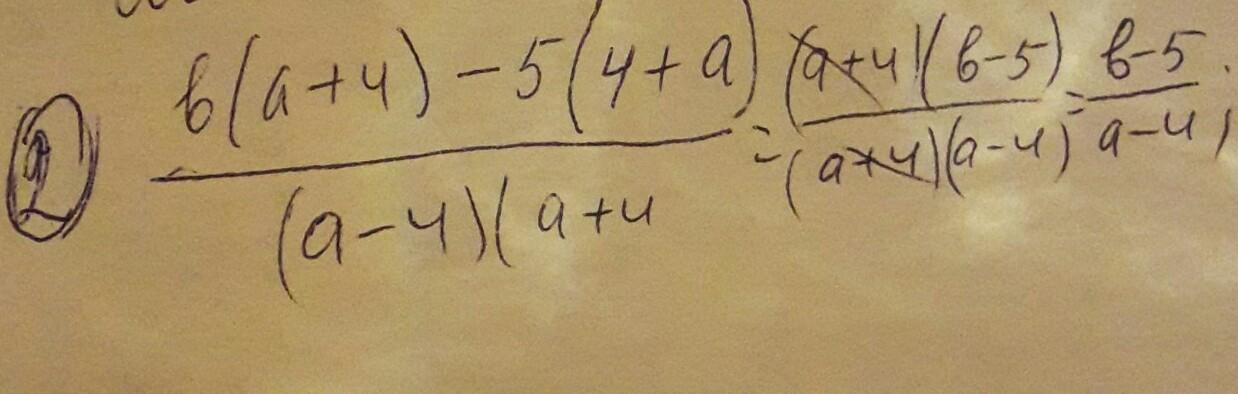 ② b(a+4)-5(4+a) / (a-4)(a+4 = (a+4)(b-5) / (a+4)(a-4) = b-5 / a-4;